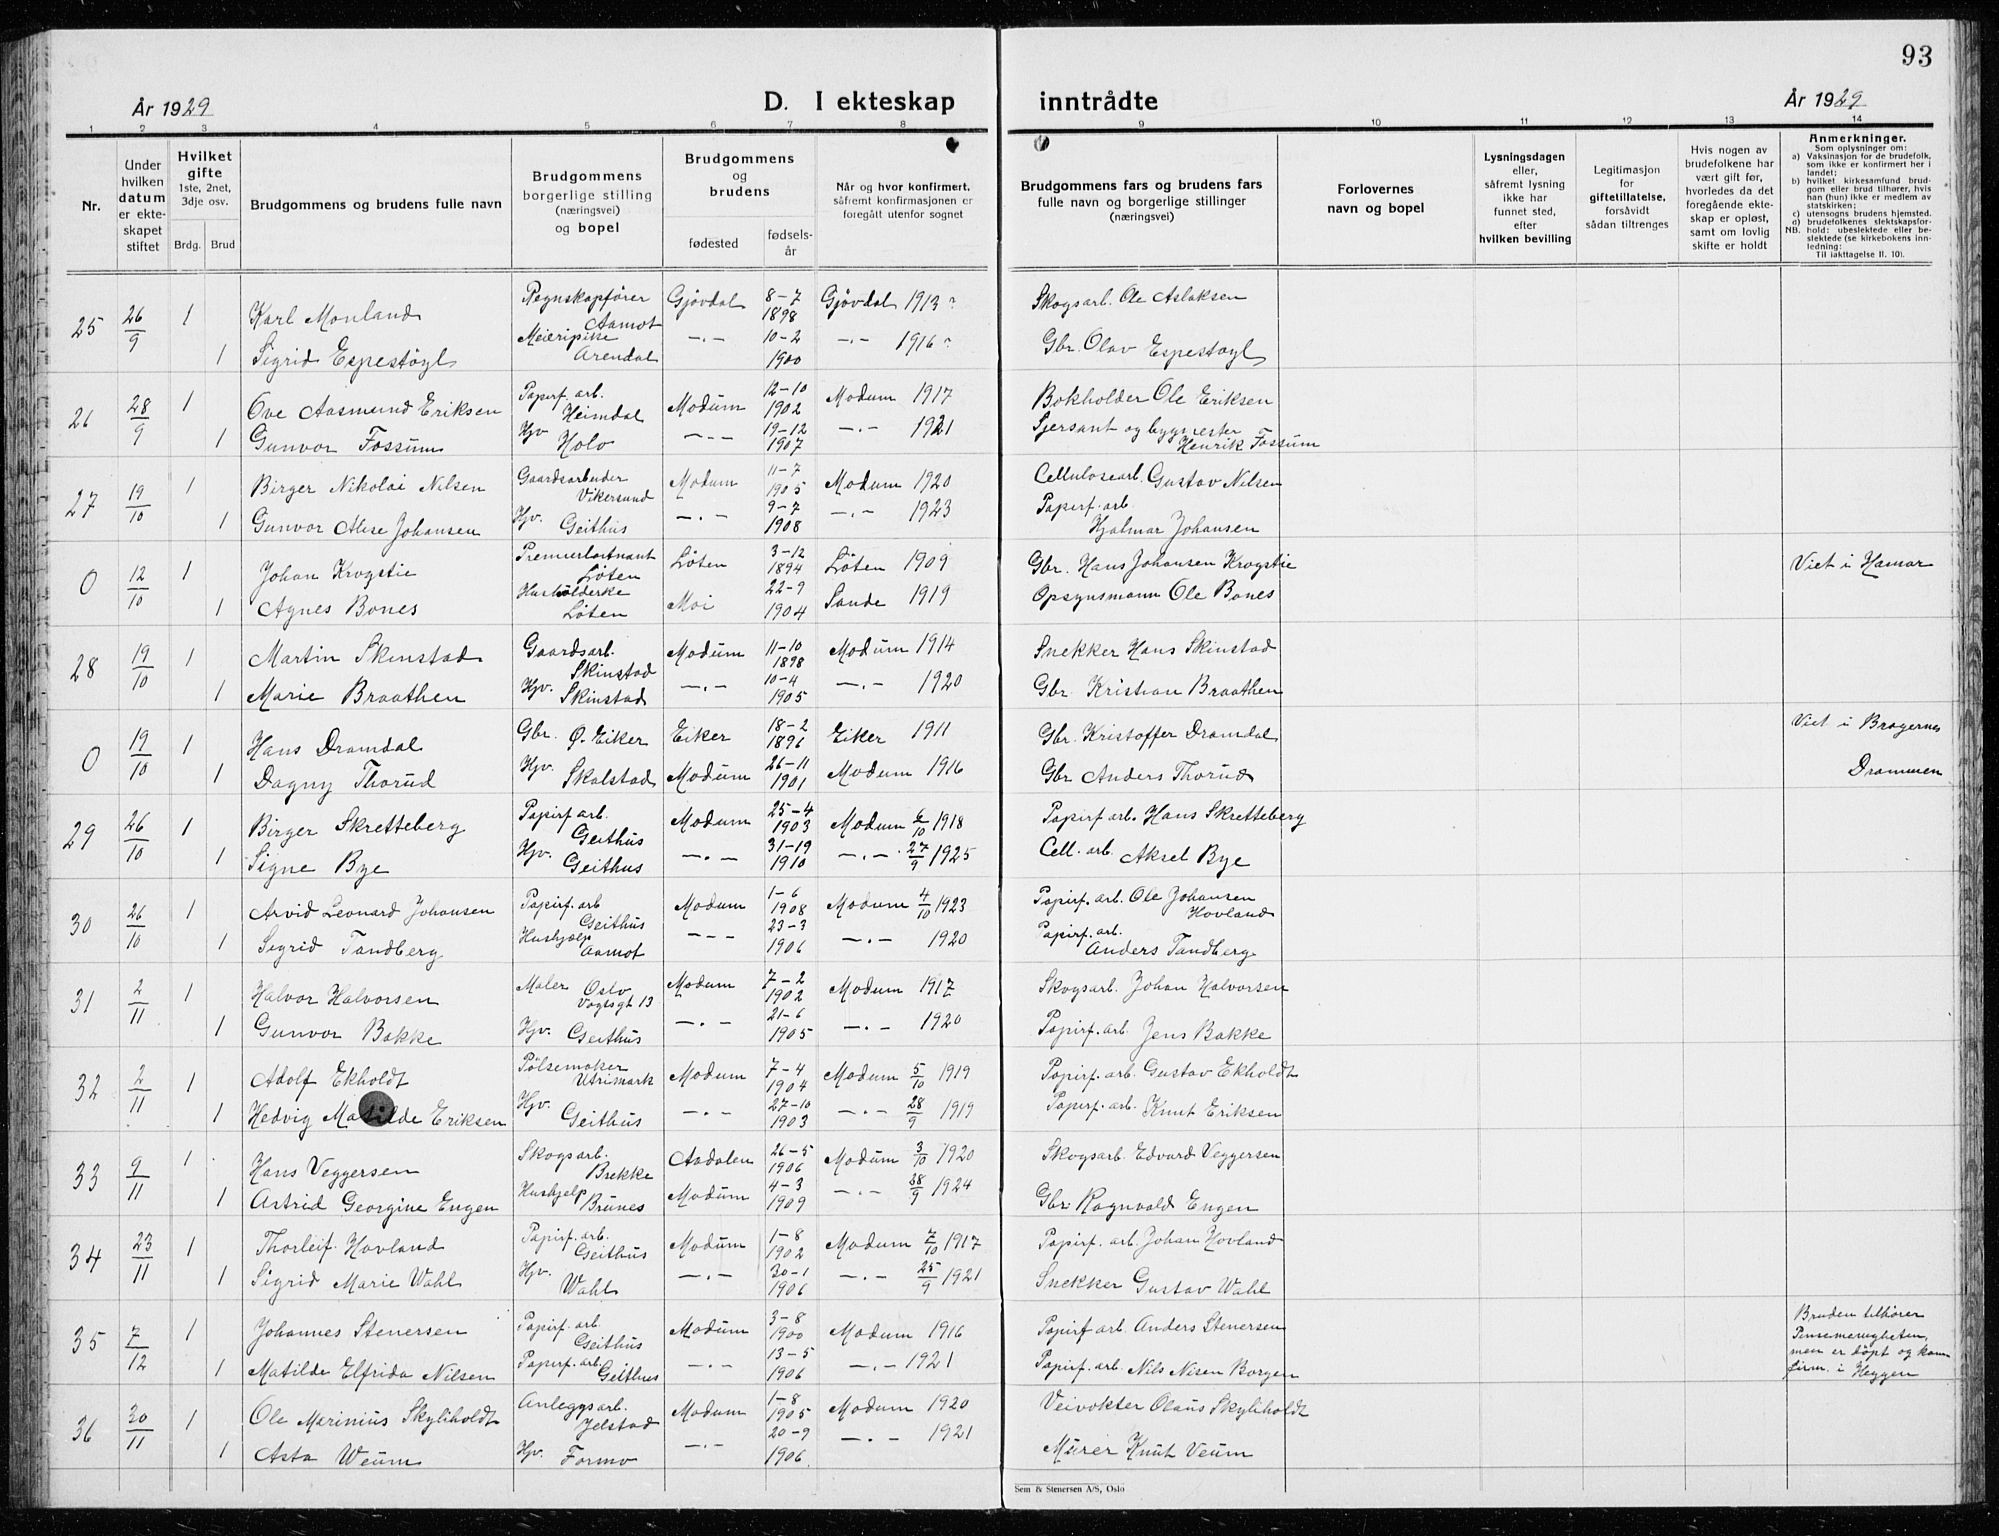 93
År 1929 D. I ekteskap inntrådte År 1929
1 2 3 4 5 6 7 8 9 10 11 12 13 14
Nr.
Under hvilken datum er ekteskapet stiftet
Hvilket gifte 1ste, 2net, 3dje osv.
Brdg. Brud
Brudgommens og brudens fulle navn
Brudgommens borgerlige stilling (næringsvei) og bopel
Brudgommens og brudens
fødested fødsels-år
Når og hvor konfirmert, såfremt konfirmasjonen er foregått utenfor sognet
Brudgommens fars og brudens fars fulle navn og borgerlige stillinger (næringsvei)
Forlovernes navn og bopel
Lysningsdagen eller, såfremt lysning ikke har funnet sted, efter hvilken bevilling
Legitimasjon for giftetillatelse, forsåvidt sådan tiltrenges
Hvis nogen av brudefolkene har vært gift før, hvorledes da det foregående ekteskap er opløst, samt om lovlig skifte er holdt
Anmerkninger.
Som oplysninger om:
a) Vaksinasjon for de brudefolk, som ikke er konfirmert her i landet;
b) hvilket kirkesamfund brudgom eller brud tilhører, hvis han (hun) ikke er medlem av statskirken;
c) utensogns brudens hjemsted.
d) brudefolkenes slektskapsforhold: ubeslektede eller beslektede (se kirkebokens innledning:
NB.
Til iakttagelse II. 10).
25 26/9 1 Karl Monland Regnskapfører Aamot Gjövdal 8-7 1898 Gjövdal 1913? Skogsarb. Ole Aslaksen
1 Sigrid Espestöyl Meieripike Arendal —.— 10-2 1900 —.— 1916? Gbr. Olav Espestöyl
26 28/9 1 Ove Aasmund Eriksen Papirf. arb. Heimdal Modum 12-10 1902 Modum 1917 Bokholder Ole Eriksen
1 Gunvor Fossum Hjv Holo —.— 19-12 1907 —.— 1921 Sjersant og bygmester Henrik Fossum
27 19/10 1 Birger Nikolai Nilsen Gaardsarbeider Vikersund Modum 11-7 1905 Modum 1920 Cellulosearb. Gustav Nilsen
1 Gunvor Alise Johansen Hjv. Geithus —.— 9-7 1908 —.— 1923 Papirf. arb. Hjalmar Johansen
0 12/10 1 Johan Krogstie Premierlöitnant Löten Löten 3-12 1894 Löten 1909 Gbr. Hans Johansen Krogstie Viet i Hamar
1 Agnes Bones Husholderske Löten Moi 22-9 1904 Sande 1919 Opsynsmann Ole Bones
28 19/10 1 Martin Skinstad Gaardsarb. Skinstad Modum 11-10 1898 Modum 1914 Snekker Hans Skinstad
1 Marie Braathen Hjv. Skinstad —.— 10-4 1905 —.— 1920 Gbr. Kristian Braathen
0 19/10 1 Hans Dramdal Gbr. Ø. Eiker Eiker 18-2 1896 Eiker 1911 Gbr. Kristoffer Dramdal Viet i Bragernes
1 Dagny Thorud Hjv. Skalstad Modum 26-11 1901 Modum 1916 Gbr Anders Thorud Drammen
29 26/10 1 Birger Skretteberg Papirf arb. Geithus Modum 25-4 1903 Modum 6/10 1918 Papirf arb. Hans Skretteberg
1 Signe Bye Hjv. Geithus —.— 31-19 1910 —.— 27/9 1925 Cell. arb. Aksel Bye
30 26/10 1 Arvid Leonard Johansen Papirf. arb Geithus Modum 1-6 1908 Modum 4/10 1923 Papirf. arb. Ole Johansen Hovland
1 Sigrid Tandberg Hushjælp Aamot --- 23-3 1906 —.— 1920 Papirf. arb. Anders Tandberg
31 2/11 1 Halvor Halvorsen Maler Oslo Vogtsgt 13 Modum 7-2 1902 Modum 1917 Skogsarb. Johan Halvorsen
1 Gunvor Bakke Hjv. Geithus —.— 21-6 1905 —.— 1920 Papirf. arb. Jens Bakke
32 2/11 1 Adolf Ekholdt Pölsemaker Utrimark Modum 7-4 1904 Modum 5/10 1919 Papirf. arb. Gustav Ekholdt
1 Hedvig Matilde Eriksen Hjv. Geithus —.— 27-10 1903 —.— 28/9 1919 Papirf. arb. Knut Eriksen
33 9/11 1 Hans Veggersen Skogsarb. Brekke Aadalen 26-5 1906 Modum 3/10 1920 Skogsarb. Edvard Veggersen
1 Astrid Georgine Engen Hushjelp Brunes Modum 4-3 1909 —.— 28/9 1924 Gbr. Ragnvald Engen
34 23/11 1 Thorleif Hovland Papirf. arb. Geithus Modum 1-8 1902 Modum 7/10 1917 Papirf. arb. Johan Hovland
1 Sigrid Marie Wahl Hjv. Wahl —.— 30-1 1906 —.— 25/9 1921 Snekker Gustav Wahl
35 7/12 1 Johannes Stenersen Papirf. arb. Geithus Modum 3-8 1900 Modum 1916 Papirf arb. Anders Stenersen Bruden tilhører Pinsemenigheten, men er döpt og konfirm. i Heggen
1 Matilde Elfrida Nilsen Papirf. arb. Geithus —.— 13-5 1906 —.— 1921 Papirf. arb. Nils Nisen Borgen
36 30/11 1 Ole Marinius Skyliholdt Anleggsarb. Jelstad Modum 1-8 1905 Modum 1920 Veivokter Olaus Skyliholdt
1 Asta Weum Hjv. Formo —.— 20-9 1906 —.— 1921 Murer Knut Veum
Sem & Stenersen A/S, Oslo